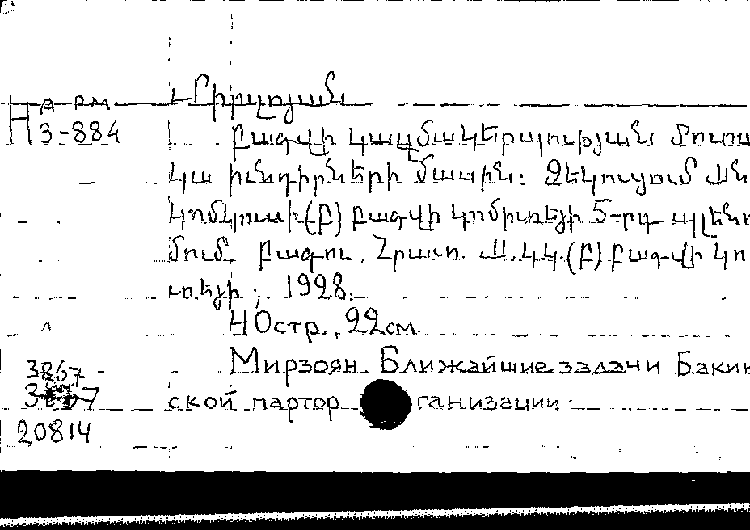 Арм
Н 3-884
Միրզոյան
Բագվի կազմակերպության մոտա
կա խնդիրների մասին: Զեկուցում Ան
կոմկուսի (բ) Բագվի կոմիտեյի 5-րդ պլենու
մում. Բագու, Հրատ. Ա.Կ.Կ.(բ) Բագվի կո
տեյի, 1928.
40стр., 22см
Мирзоян. Ближайшие задачи Бакин
ской парторганизации
3867
20814